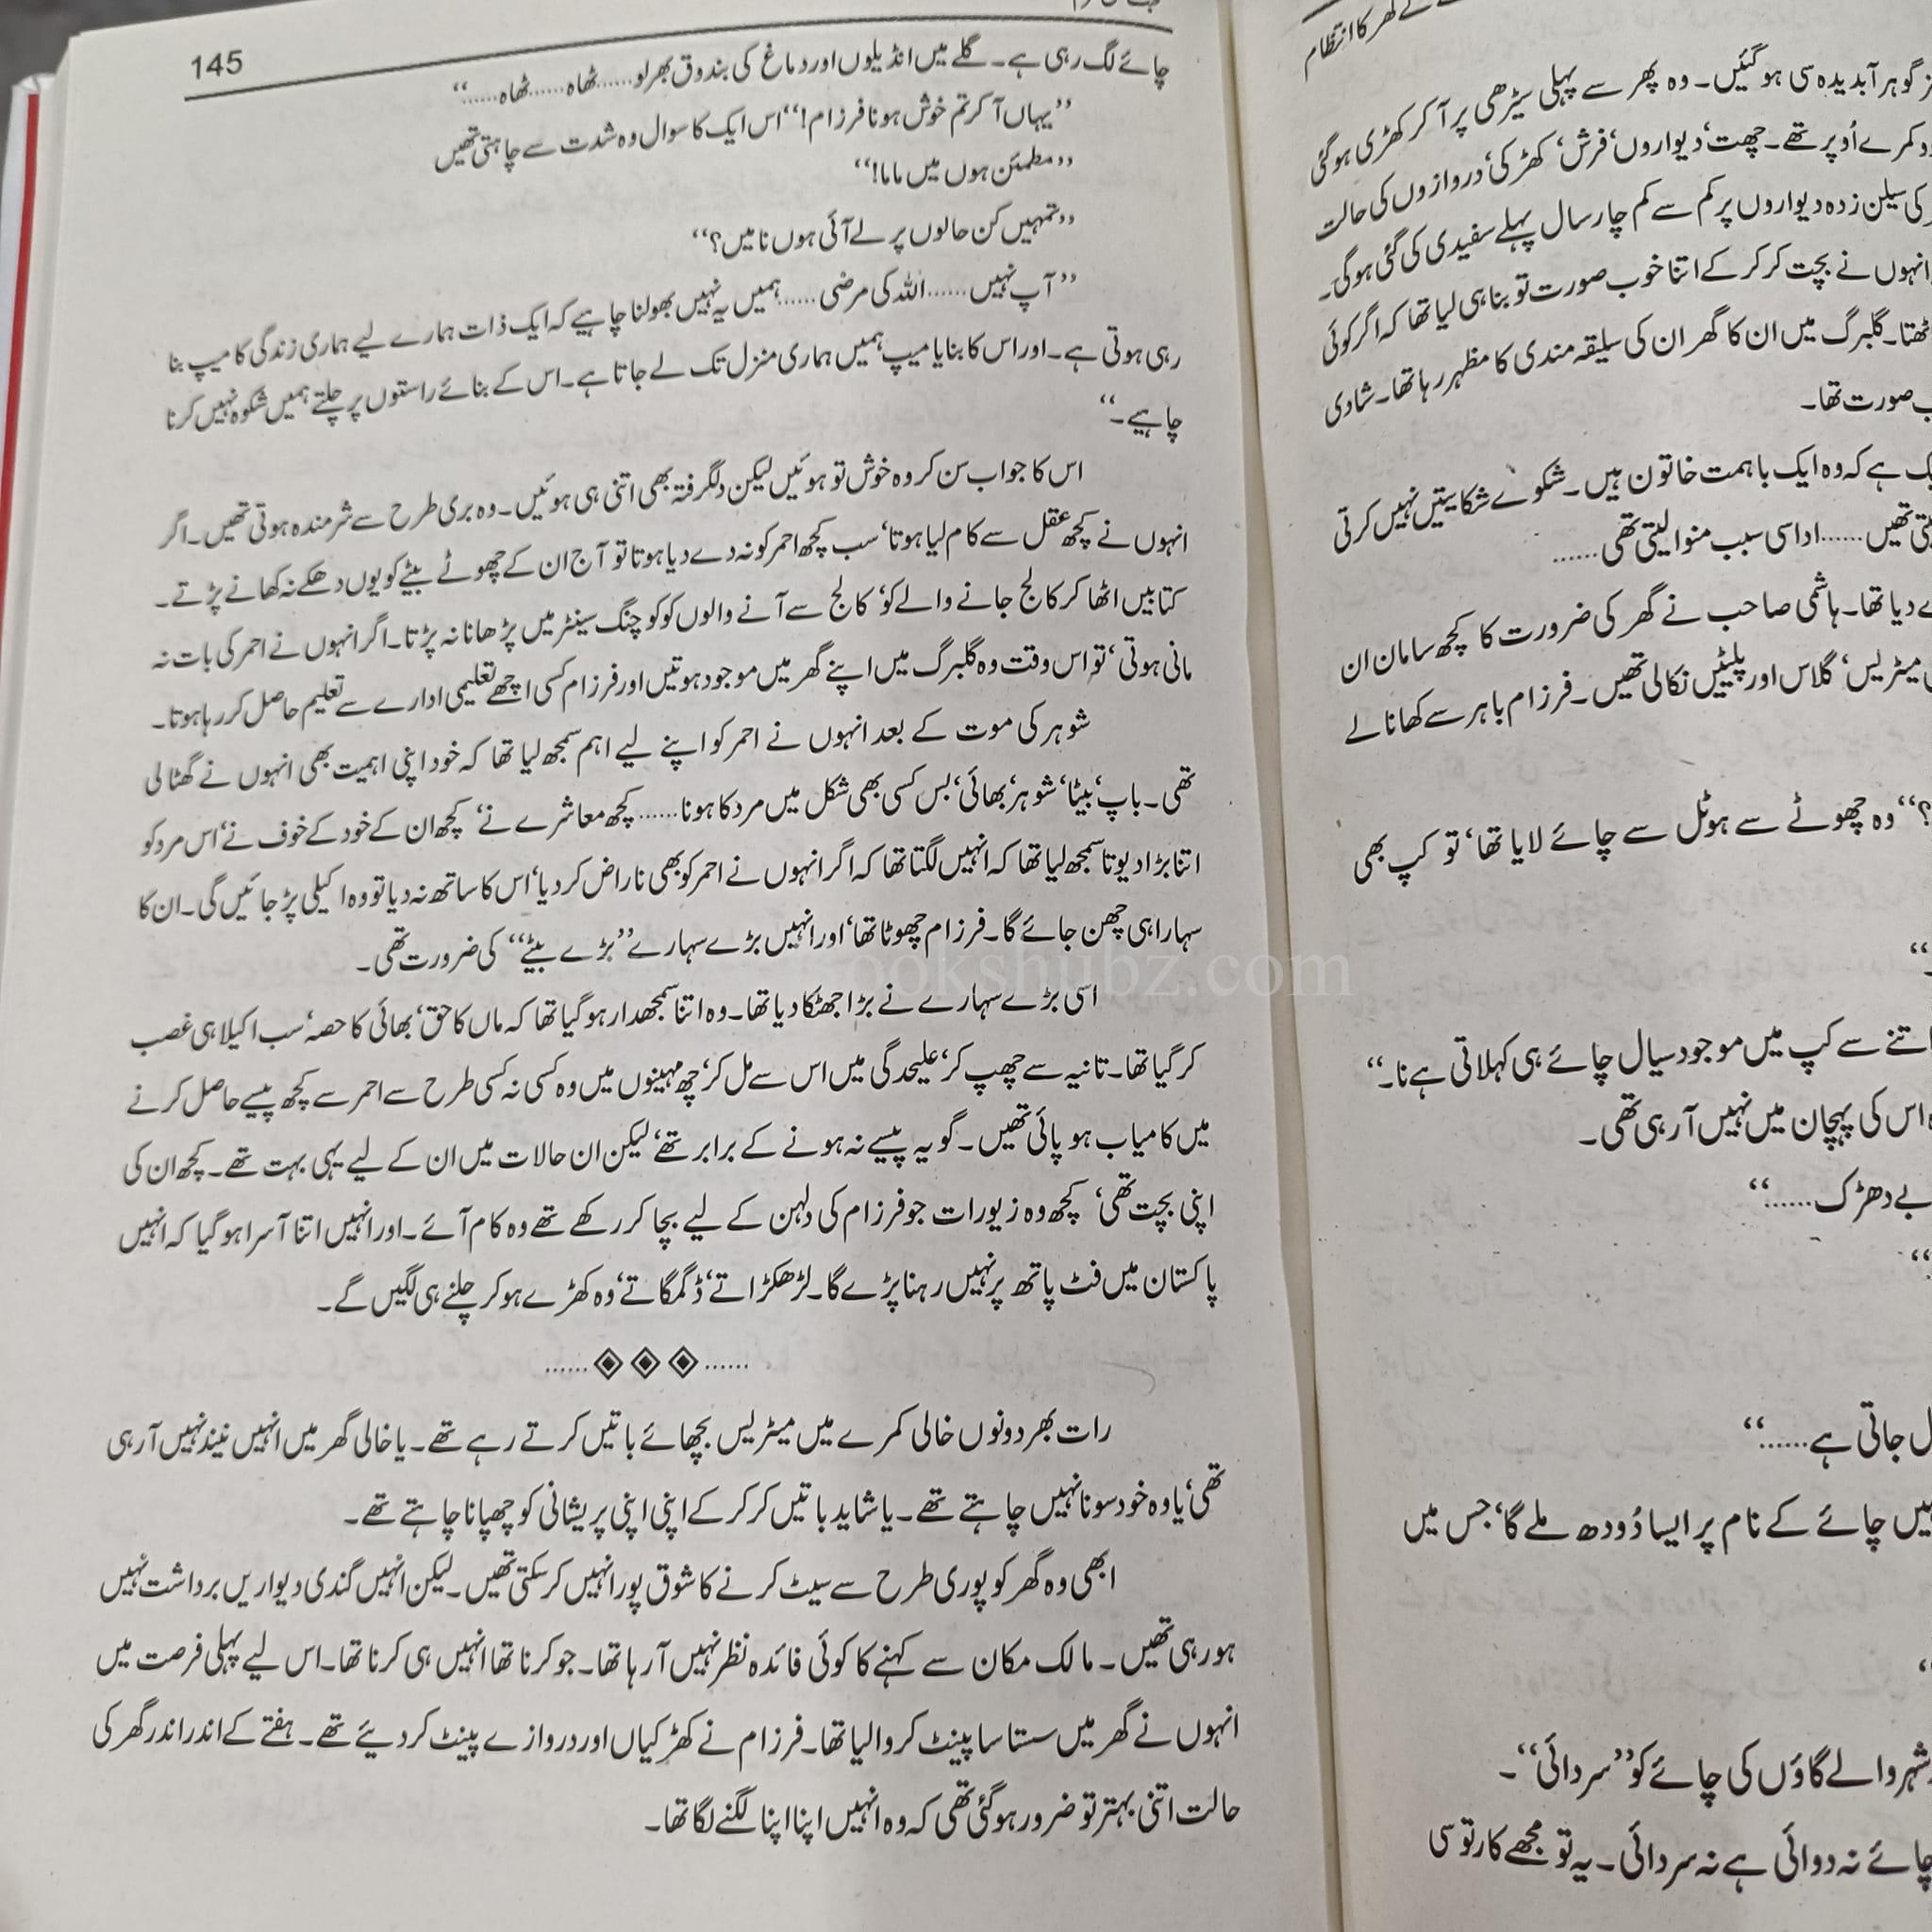 کے گھر کا انتظام
گوہر آبدیدہ سی ہو گئیں۔ وہ پھر سے پہلی سیڑھی پر آ کر کھڑی ہو گئی
کمرے اُوپر تھے۔ چھت‘ دیواروں‘ فرش‘ کھڑکی‘ دروازوں کی حالت
کی سیلن زدہ دیواروں پر کم سے کم چار سال پہلے سفیدی کی گئی ہوگی۔
انہوں نے بچت کر کر کے اتنا خوب صورت تو بنا ہی لیا تھا کہ اگر کوئی
گلبرگ میں ان کا گھر ان کی سلیقہ مندی کا مظہر رہا تھا۔ شادی
صورت تھا۔
ہے کہ وہ ایک باہمت خاتون ہیں۔ شکوے شکایتیں نہیں کرتی
تھیں......اداسی سبب منوا لیتی تھی......
دیا تھا۔ ہاشمی صاحب نے گھر کی ضرورت کا کچھ سامان ان
میٹریس‘ گلاس اور پلیٹیں نکالی تھیں۔ فرزام باہر سے کھانا لے
؟‘‘ وہ چھوٹے سے ہوٹل سے چائے لایا تھا‘ تو کپ بھی
۔‘‘
اتنے سے کپ میں موجود سیال چائے ہی کہلاتی ہے نا۔‘‘
اس کی پہچان میں نہیں آ رہی تھی۔
بے دھڑک......‘‘
‘‘
جاتی ہے......‘‘
چائے کے نام پر ایسا دُودھ ملے گا‘ جس میں
شہر والے گاؤں کی چائے کو ’’سردائی‘‘۔
چائے نہ دوائی ہے نہ سردائی۔ یہ تو مجھے کارتوسی
145
چائے لگ رہی ہے۔ گلے میں انڈیلوں اور دماغ کی بندوق بھر لو......ٹھاہ......ٹھاہ......‘‘
’’یہاں آ کر تم خوش ہو نا فرزام!‘‘ اس ایک کا سوال وہ شدت سے چاہتی تھیں
’’مطمئن ہوں میں ماما!‘‘
’’تمہیں کن حالوں پر لے آئی ہوں نا میں؟‘‘
’’آپ نہیں......اللہ کی مرضی......ہمیں یہ نہیں بھولنا چاہیے کہ ایک ذات ہمارے لیے ہماری زندگی کا میپ بنا
رہی ہوتی ہے۔ اور اس کا بنایا میپ ہمیں ہماری منزل تک لے جاتا ہے۔ اس کے بنائے راستوں پر چلتے ہمیں شکوہ نہیں کرنا
چاہیے۔‘‘
اس کا جواب سن کر وہ خوش تو ہوئیں لیکن دلگرفتہ بھی اتنی ہی ہوئیں۔ وہ بری طرح سے شرمندہ ہوتی تھیں۔ اگر
انہوں نے کچھ عقل سے کام لیا ہوتا‘ سب کچھ احمر کو نہ دے دیا ہوتا تو آج ان کے چھوٹے بیٹے کو یوں دھکے نہ کھانے پڑتے۔
کتابیں اٹھا کر کالج جانے والے کو‘ کالج سے آنے والوں کو کوچنگ سینٹر میں پڑھانا نہ پڑتا۔ اگر انہوں نے احمر کی بات نہ
مانی ہوتی‘ تو اس وقت وہ گلبرگ میں اپنے گھر میں موجود ہوتیں اور فرزام کسی اچھے تعلیمی ادارے سے تعلیم حاصل کر رہا ہوتا۔
شوہر کی موت کے بعد انہوں نے احمر کو اپنے لیے اہم سمجھ لیا تھا کہ خود اپنی اہمیت بھی انہوں نے گھٹا لی
تھی۔ باپ‘ بیٹا‘ شوہر‘ بھائی‘ بس کسی بھی شکل میں مرد کا ہونا......کچھ معاشرے نے‘ کچھ ان کے خود کے خوف نے‘ اس مرد کو
اتنا بڑا دیوتا سمجھ لیا تھا کہ انہیں لگتا تھا کہ اگر انہوں نے احمر کو بھی ناراض کر دیا‘ اس کا ساتھ نہ دیا تو وہ اکیلی پڑ جائیں گی۔ ان کا
سہارا ہی چھن جائے گا۔ فرزام چھوٹا تھا‘ اور انہیں بڑے سہارے ’’بڑے بیٹے‘‘ کی ضرورت تھی۔
اسی بڑے سہارے نے بڑا جھٹکا دیا تھا۔ وہ اتنا سمجھدار ہو گیا تھا کہ ماں کا حق‘ بھائی کا حصہ‘ سب اکیلا ہی غصب
کر گیا تھا۔ تانیہ سے چھپ کر‘ علیحدگی میں اس سے مل کر‘ چھ مہینوں میں وہ کسی نہ کسی طرح سے احمر سے کچھ پیسے حاصل کرنے
میں کامیاب ہو پائی تھیں۔ گو یہ پیسے نہ ہونے کے برابر تھے‘ لیکن ان حالات میں ان کے لیے یہی بہت تھے۔ کچھ ان کی
اپنی بچت تھی‘ کچھ وہ زیورات جو فرزام کی دلہن کے لیے بچا کر رکھے تھے وہ کام آئے۔ اور انہیں اتنا آسرا ہو گیا کہ انہیں
پاکستان میں فٹ پاتھ پر نہیں رہنا پڑے گا۔ لڑھکڑاتے‘ ڈگمگاتے‘ وہ کھڑے ہو کر چلنے ہی لگیں گے۔
......◈◈◈......
رات بھر دونوں خالی کمرے میں میٹریس بچھائے باتیں کرتے رہے تھے۔ یا خالی گھر میں انہیں نیند نہیں آ رہی
تھی‘ یا وہ خود سونا نہیں چاہتے تھے۔ یا شاید باتیں کر کر کے اپنی اپنی پریشانی کو چھپانا چاہتے تھے۔
ابھی وہ گھر کو پوری طرح سے سیٹ کرنے کا شوق پورا نہیں کر سکتی تھیں۔ لیکن انہیں گندی دیواریں برداشت نہیں
ہو رہی تھیں۔ مالک مکان سے کہنے کا کوئی فائدہ نظر نہیں آ رہا تھا۔ جو کرنا تھا انہیں ہی کرنا تھا۔ اس لیے پہلی فرصت میں
انہوں نے گھر میں سستا سا پینٹ کروا لیا تھا۔ فرزام نے کھڑکیاں اور دروازے پینٹ کر دیئے تھے۔ ہفتے کے اندر اندر گھر کی
حالت اتنی بہتر تو ضرور ہو گئی تھی کہ وہ انہیں اپنا اپنا لگنے لگا تھا۔
ookshubz.com